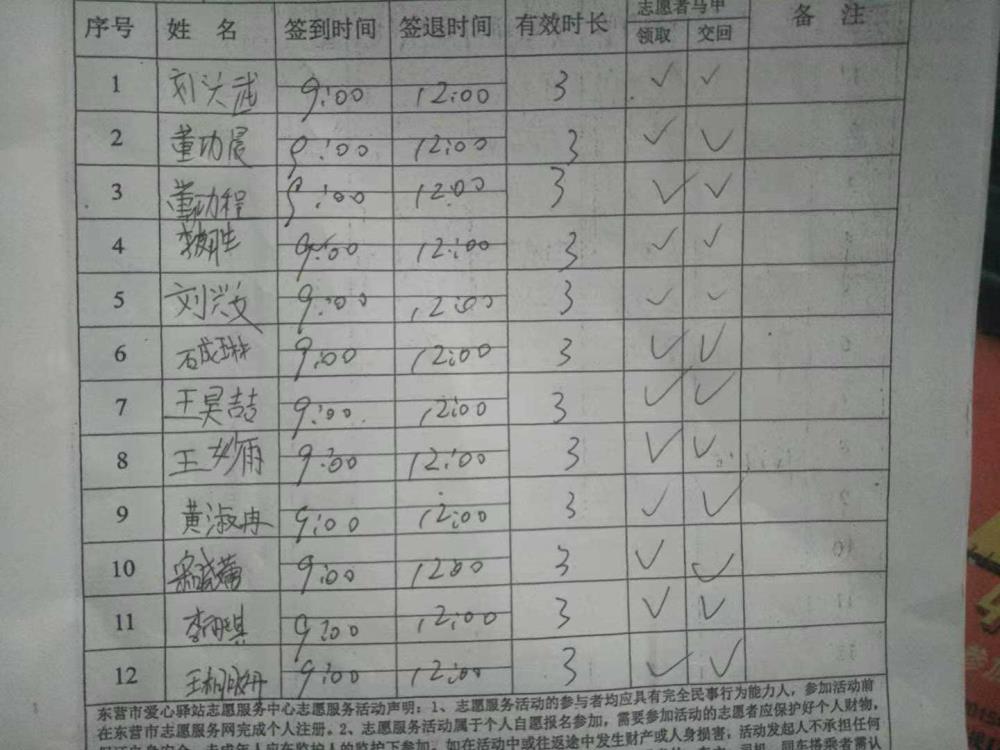 志愿者马甲
序号 姓 名 签到时间 签退时间 有效时长 领取 交回 备 注
1 刘兴武 9:00 12:00 3 ✓ ✓
2 董功晨 9:00 12:00 3 ✓ ✓
3 董功程 9:00 12:00 3 ✓ ✓
4 9:00 12:00 3 ✓ ✓
5 刘兴文 9:00 12:00 3 ✓ ✓
6 石成琳 9:00 12:00 3 ✓ ✓
7 王昊喆 9:00 12:00 3 ✓ ✓
8 王 9:00 12:00 3 ✓ ✓
9 黄淑冉 9:00 12:00 3 ✓ ✓
10 9:00 12:00 3 ✓ ✓
11 李雨琪 9:00 12:00 3 ✓ ✓
12 王 9:00 12:00 3 ✓ ✓
东营市爱心驿站志愿服务中心志愿服务活动声明：1、志愿服务活动的参与者均应具有完全民事行为能力人，参加活动前
在东营市志愿服务网完成个人注册。2、志愿服务活动属于个人自愿报名参加，需要参加活动的志愿者应保护好个人财物，
未成年人应在监护人的监护下参加。如在活动中或往返途中发生财产或人身损害，活动发起人不承担任何